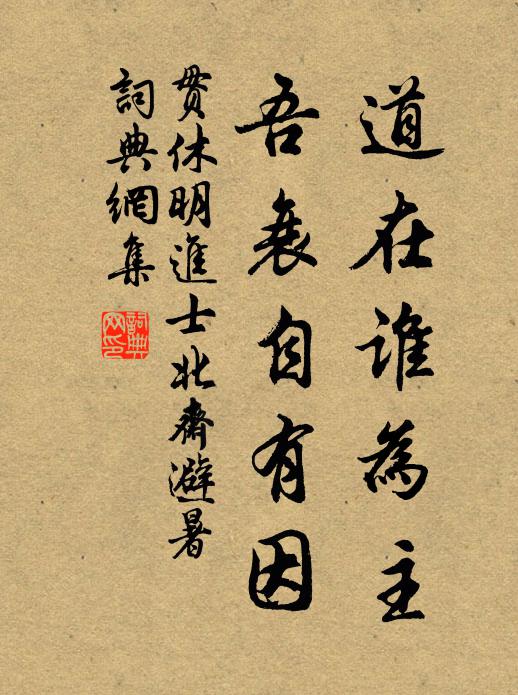 道在誰為主
吾衰自有因
贯休明進士北齋避暑
詞典網集
詞典网印